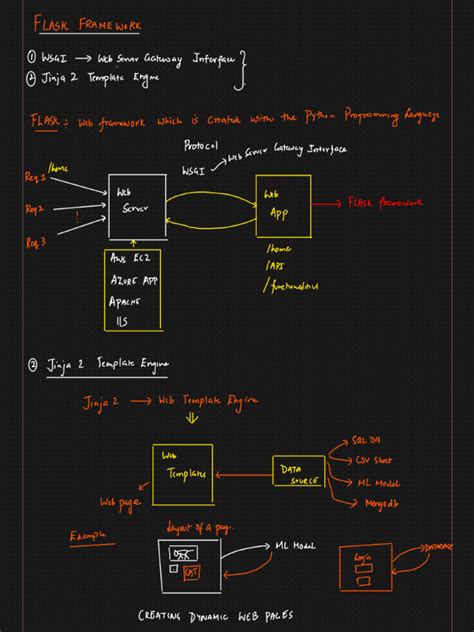 FLASK FRAMEWORK
① WSGI → Web Server Gateway Interface
② Jinja 2 Template Engine
FLASK: Web framework which is created with the Python Programming Language
Protocol
WSGI → Web Server Gateway Interface
/home
Req 1
Req 2
Req 3
Web Server
Web App
FLASK framework
/home
/API
/functionalities
AWS EC2
AZURE APP
APACHE
IIS
② Jinja 2 Template Engine
Jinja 2 → Web Template Engine
Web Templates
DATA SOURCE
SQL DB
CSV Sheet
ML Model
Mongodb
Web page
Example
Layout of a page
ML Model
CAT
Login
DATABASE
CREATING DYNAMIC WEB PAGES